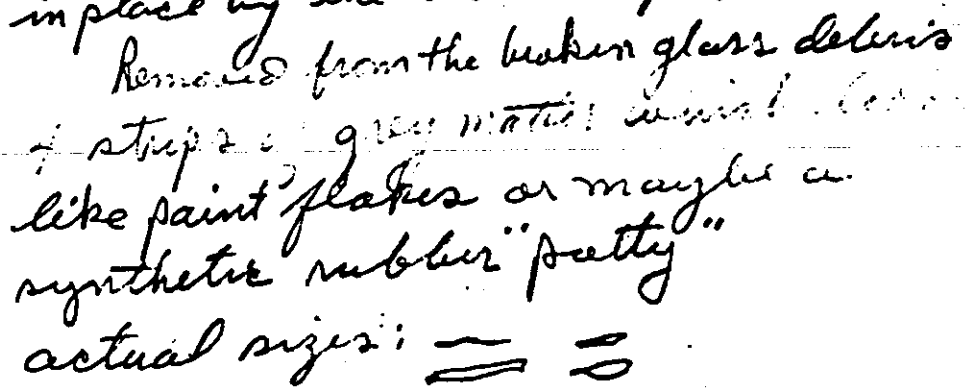 in place by the
Removed from the broken glass debris
4 strips of grey matter which
like paint flakes or maybe a
synthetic rubber "putty"
actual sizes: